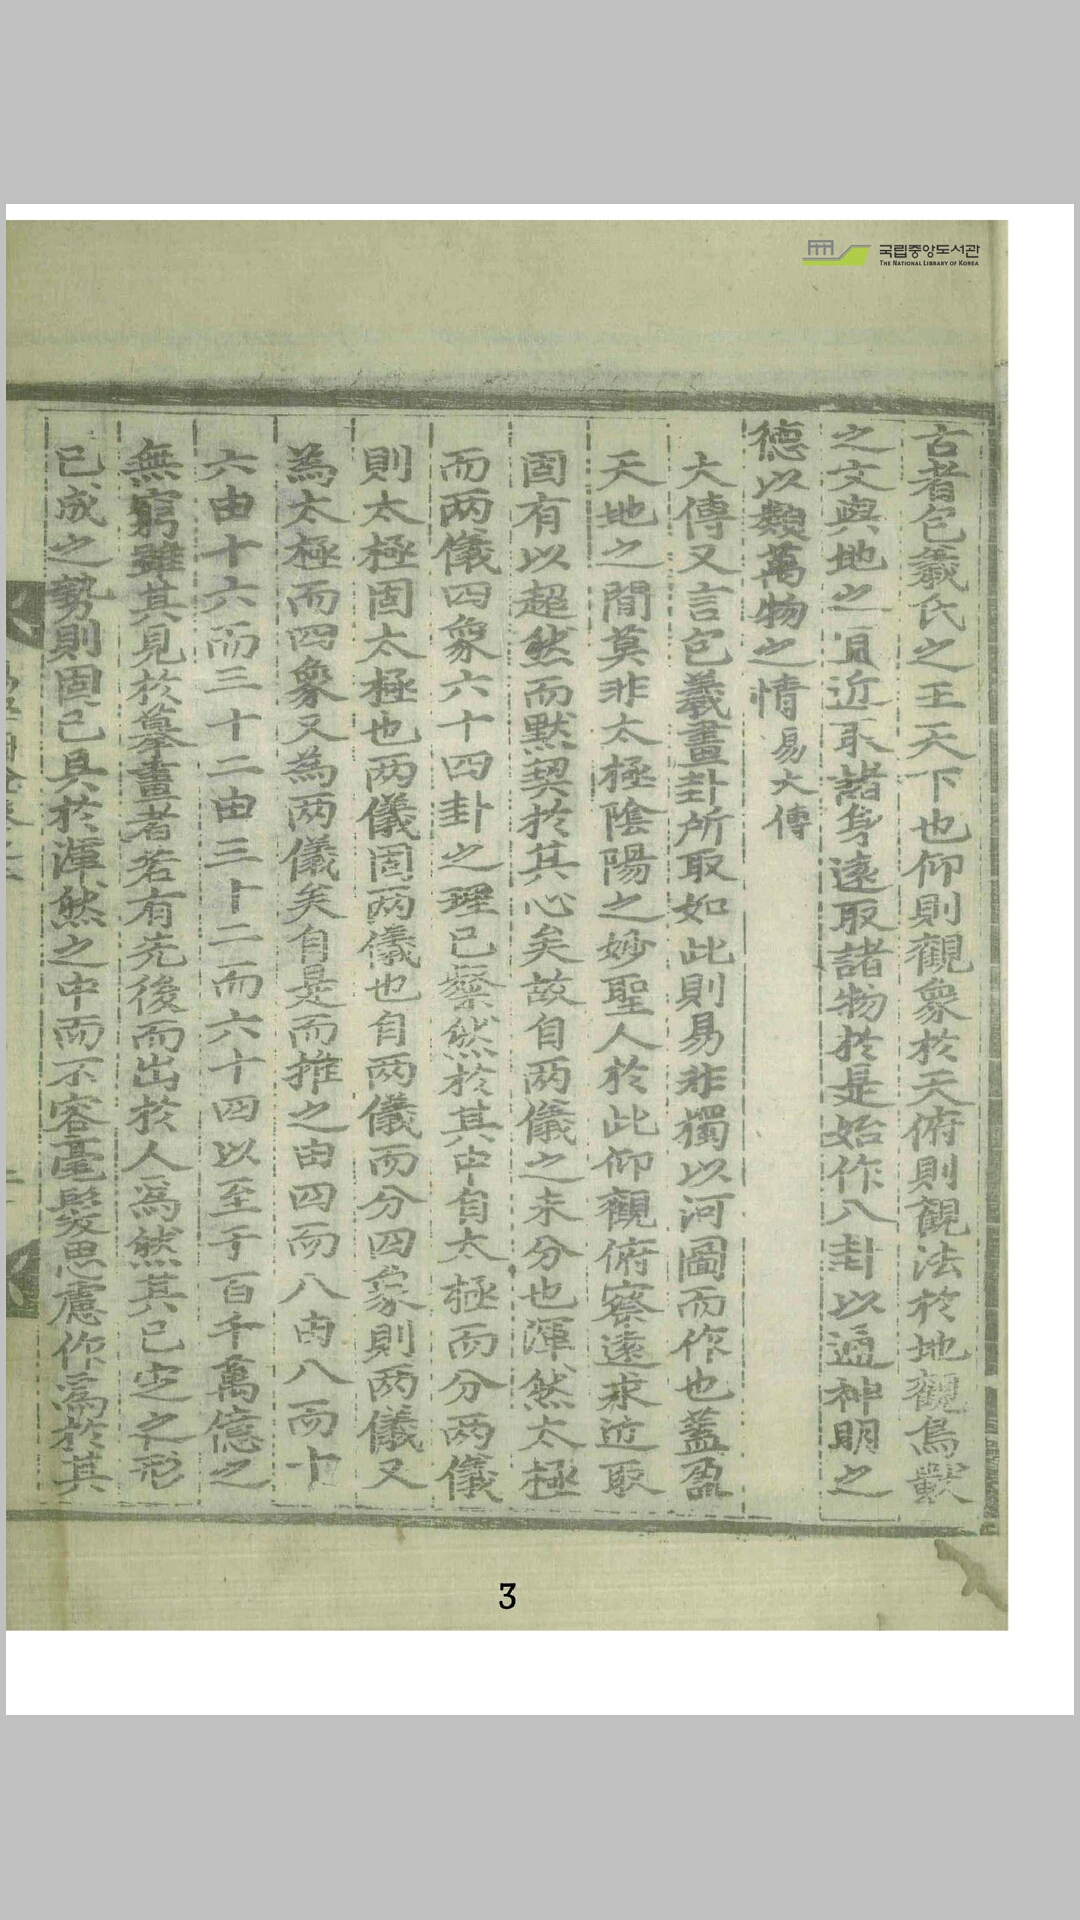 국립중앙도서관
THE NATIONAL LIBRARY OF KOREA
古者包羲氏之王天下也仰則觀象於天俯則觀法於地觀鳥獸
之文與地之宜近取諸身遠取諸物於是始作八卦以通神明之
德以類萬物之情易大傳
大傳又言包羲畫卦所取如此則易非獨以河圖而作也蓋盈
天地之間莫非太極陰陽之妙聖人於此仰觀俯察遠求近取
固有以超然而默契於其心矣故自兩儀之未分也渾然太極
而兩儀四象六十四卦之理已粲然於其中自太極而分兩儀
則太極固太極也兩儀固兩儀也自兩儀而分四象則兩儀又
為太極而四象又為兩儀矣自是而推之由四而八由八而十
六由十六而三十二由三十二而六十四以至于百千萬億之
無窮雖其見於摹畫者若有先後而出於人爲然其已定之形
已成之勢則固已具於渾然之中而不容毫髮思慮作爲於其
3